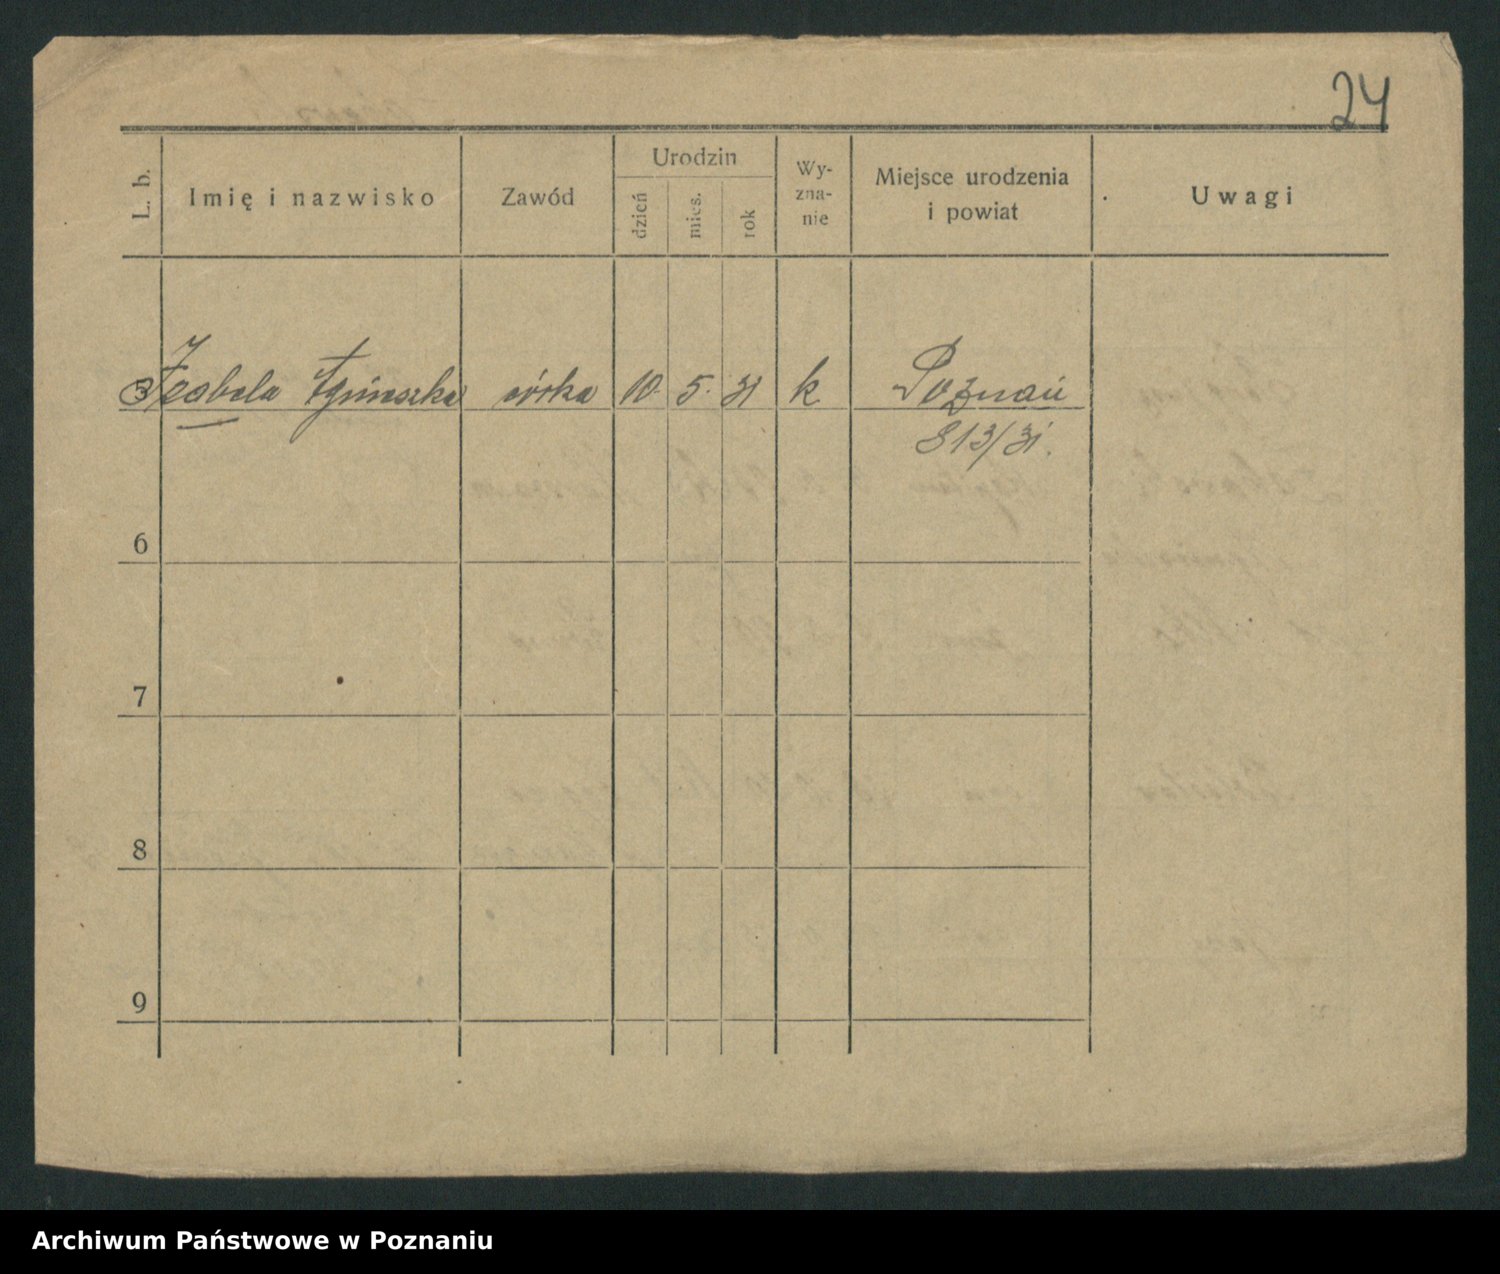 24
L. b. Imię i nazwisko Zawód Urodzin dzień mies. rok Wy-zna-nie Miejsce urodzenia i powiat Uwagi
5 Izabela Agnieszka córka 10. 5. 31 k Poznań
813/31.
6
7
8
9
Archiwum Państwowe w Poznaniu